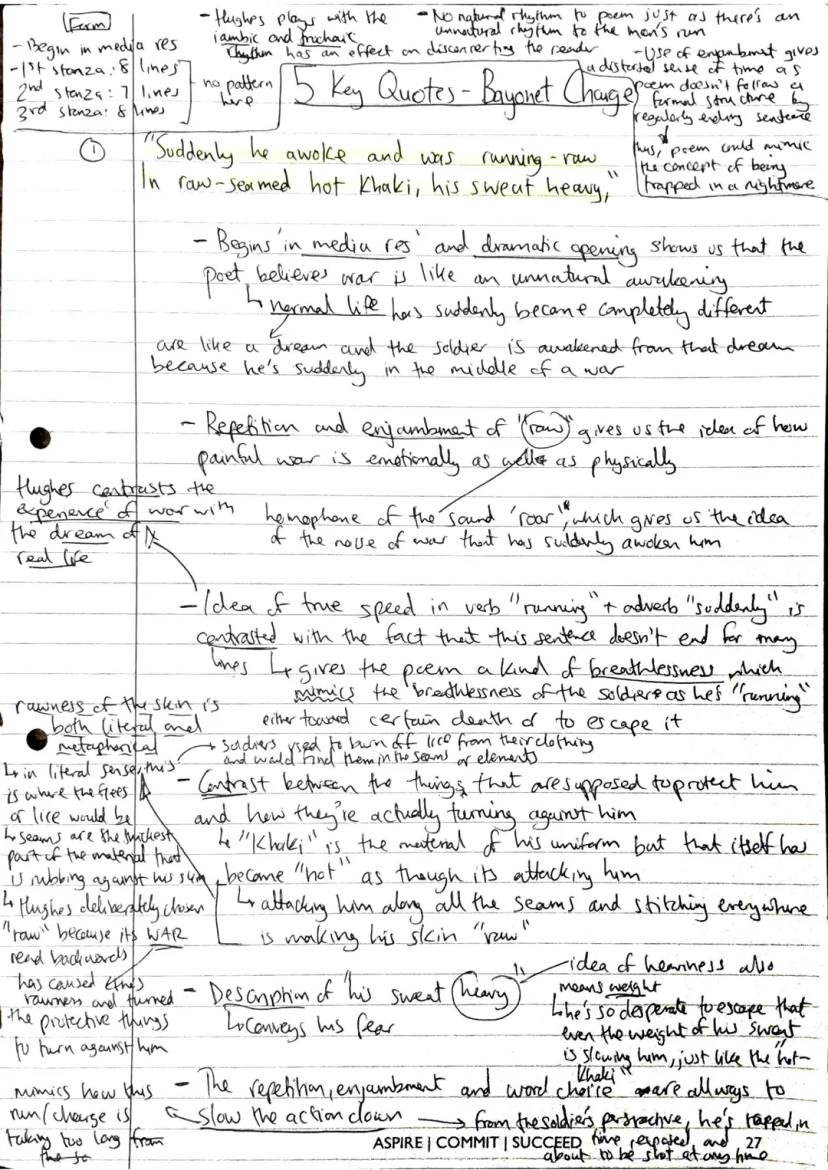 Form
- Begin in media res
- 1st stanza: 8 lines
2nd stanza: 7 lines
3rd stanza: 8 lines
no pattern
here
- Hughes plays with the
iambic and trochaic
rhythm has an effect on disconcerting the reader
- No natural rhythm to poem just as there's an
unnatural rhythm to the men's run
- Use of enjambment gives
a distorted sense of time as
poem doesn't follow a
formal structure by
regularly ending sentence
thus, poem could mimic
the concept of being
trapped in a nightmare
5 Key Quotes - Bayonet Charge
1
"Suddenly he awoke and was running - raw
In raw-seamed hot khaki, his sweat heavy,"
- Begins 'in media res' and dramatic opening shows us that the
poet believes war is like an unnatural awakening
↳ normal life has suddenly become completely different
are like a dream and the soldier is awakened from that dream
because he's suddenly in the middle of a war
- Repetition and enjambment of "raw" gives us the idea of how
painful war is emotionally as well as physically
homophone of the sound 'roar', which gives us the idea
of the noise of war that has suddenly awoken him
Hughes contrasts the
experience of war with
the dream of
real life
- Idea of true speed in verb "running" + adverb "suddenly" is
contrasted with the fact that this sentence doesn't end for many
lines ↳ gives the poem a kind of breathlessness which
mimics the breathlessness of the soldier as he's "running"
either toward certain death or to escape it
rawness of the skin is
both literal and
metaphorical
↳ in literal sense, this
is where the flees
or lice would be
↳ seams are the thickest
part of the material that
is rubbing against his skin
↳ Hughes deliberately chosen
"raw" because its WAR
read backwards
has caused this
rawness and turned
the protective things
to turn against him
→ soldiers used to burn off lice from their clothing
and would find them in the seams or elements
- Contrast between the things that are supposed to protect him
and how they're actually turning against him
↳ "Khaki" is the material of his uniform but that itself has
become "hot" as though its attacking him
↳ attacking him along all the seams and stitching everywhere
is making his skin "raw"
- Description of "his sweat heavy"
↳ Conveys his fear
idea of heaviness also
means weight
↳ he's so desperate to escape that
even the weight of his sweat
is slowing him, just like the "hot-
khaki"
- The repetition, enjambment and word choice are all ways to
slow the action down → from the soldier's perspective, he's trapped in
time, exposed, and
about to be shot at any time
mimics how this
run/charge is
taking too long from
the so
ASPIRE | COMMIT | SUCCEED 27